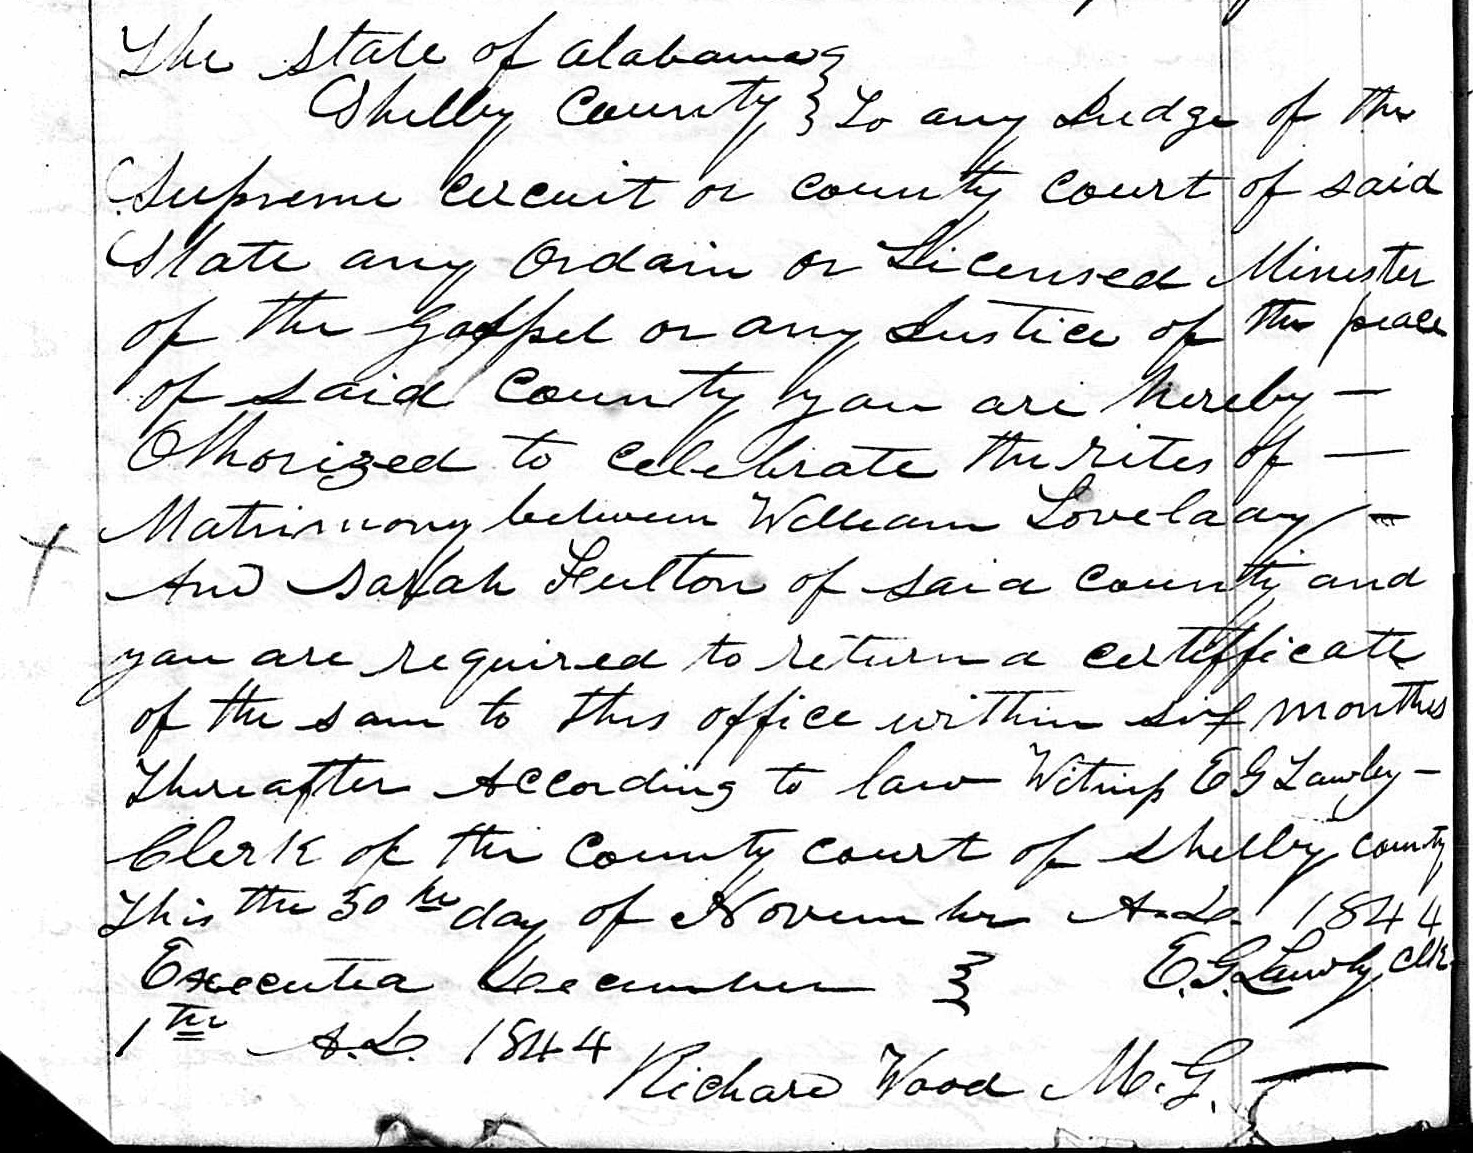 The State of Alabama }
Shelby County } To any Judge of the
Supreme circuit or county court of said
State any Ordain or Licensed Minister
of the Gosspel or any Justice of the peace
of said County you are hereby —
Othorized to celebrate the rites of —
Matrimony between William Lovelady —
And Sarah Fulton of said county and
you are required to return a certifficate
of the sam to this office within six months
thereafter According to law Witness E G Lawley —
Clerk of the County court of Shelby county
This the 30th day of November A.D. 1844
Executed December } E.G. Lawly, Clk
1th A.D. 1844
Richard Wood M.G.